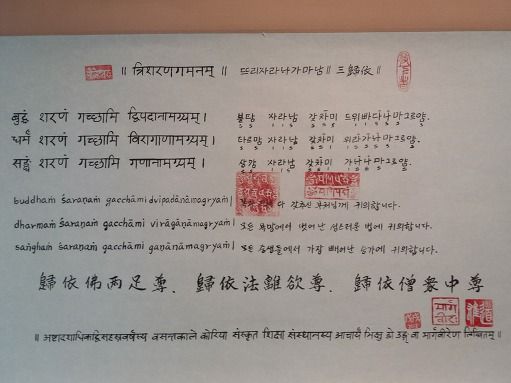 ॥ त्रिशरणगमनम् ॥ 뜨리샤라나가마남 ॥ 三歸依 ॥
बुद्धं शरणं गच्छामि द्विपदानामग्र्यम् । 붇담 샤라남 갓차미 드위빠다나마그르얌.
धर्मं शरणं गच्छामि विरागाणामग्र्यम् । 다르맘 샤라남 갓차미 위라가나마그르얌.
सङ्घं शरणं गच्छामि गणानामग्र्यम् । 상감 샤라남 갓차미 가나나마그르얌.
buddhaṁ śaraṇaṁ gacchāmi dvipadānāmagryaṁ| 다 갖추신 부처님께 귀의합니다.
dharmaṁ śaraṇaṁ gacchāmi virāgāṇāmagryaṁ| 모든 욕망에서 벗어난 성스러운 법에 귀의합니다.
saṅghaṁ śaraṇaṁ gacchāmi gaṇānāmagryaṁ| 모든 승쌩들에서 가장 빼어난 승가에 귀의합니다.
歸依佛兩足尊. 歸依法離欲尊. 歸依僧衆中尊
॥ वसन्तकाले कोरिया संस्कृत शिक्षा संस्थानस्य आचार्य भिक्षु डो मार्गवीरेण लिखितम् ॥